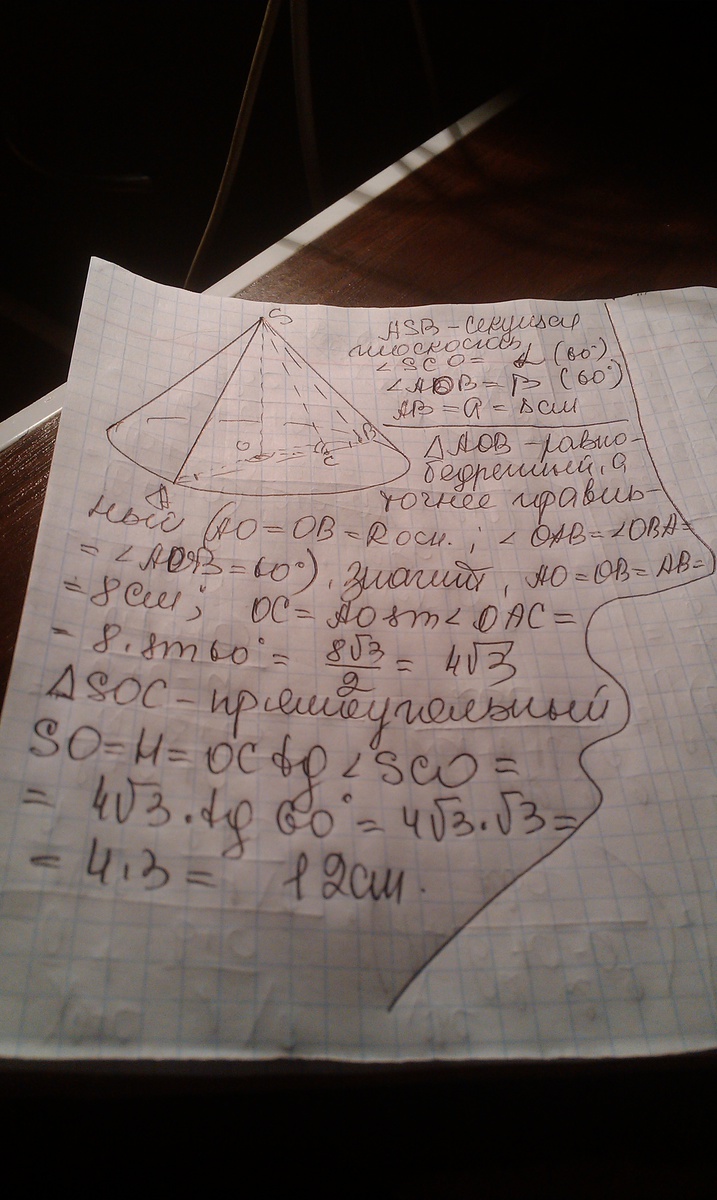 S
O
C
B
A
ASB - секущая
плоскость
∠SCO = α (60°)
∠AOB = β (60°)
AB = a = 8см
△AOB - равно-
бедренный, а
точнее правиль-
ный (AO = OB = Rосн.; ∠OAB = ∠OBA =
= ∠AOB = 60°). Значит, AO = OB = AB =
= 8см; OC = AO sin∠OAC =
= 8 · sin60° = 8√3/2 = 4√3
△SOC - прямоугольный
SO = H = OC tg∠SCO =
= 4√3 · tg 60° = 4√3 · √3 =
= 4 · 3 = 12см.